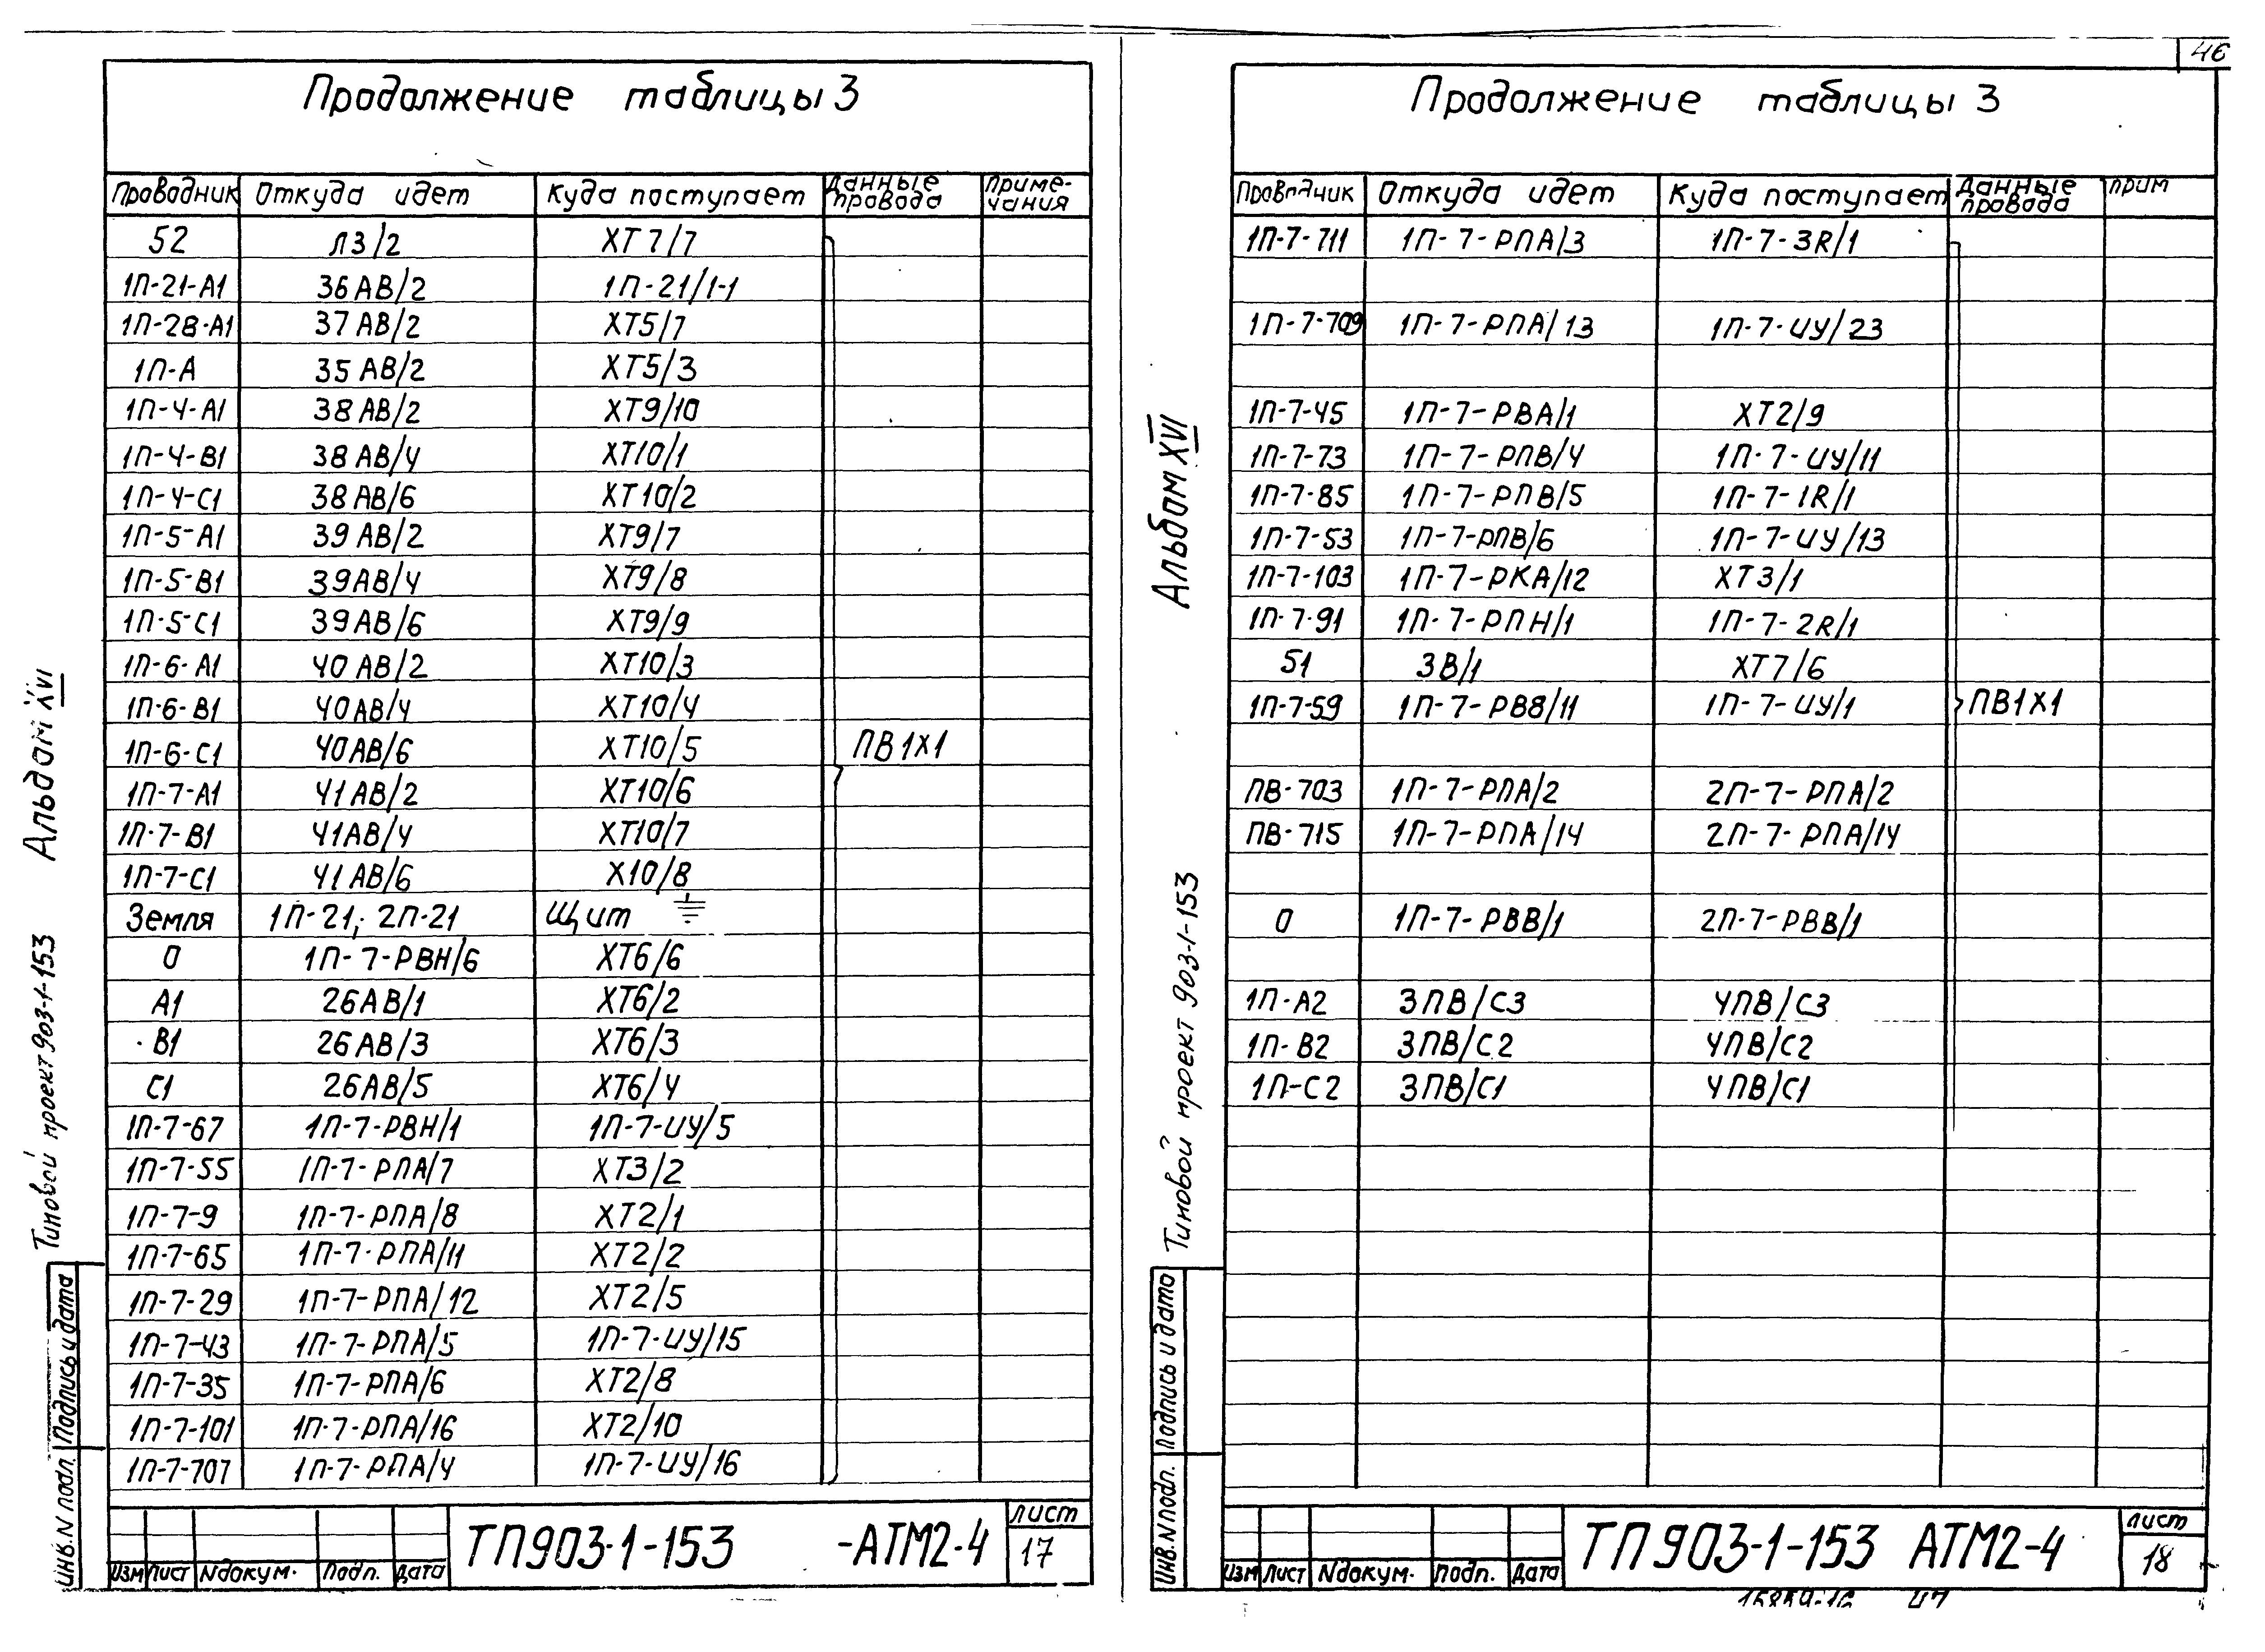 46
Продолжение таблицы 3
Проводник Откуда идет Куда поступает Данные провода Примечания
52 Л3/2 ХТ7/7
1П-21-А1 36АВ/2 1П-21/1-1
1П-28-А1 37АВ/2 ХТ5/7
1П-А 35АВ/2 ХТ5/3
1П-4-А1 38АВ/2 ХТ9/10
1П-4-В1 38АВ/4 ХТ10/1
1П-4-С1 38АВ/6 ХТ10/2
1П-5-А1 39АВ/2 ХТ9/7
1П-5-В1 39АВ/4 ХТ9/8
1П-5-С1 39АВ/6 ХТ9/9
1П-6-А1 40АВ/2 ХТ10/3
1П-6-В1 40АВ/4 ХТ10/4
1П-6-С1 40АВ/6 ХТ10/5 ПВ1Х1
1П-7-А1 41АВ/2 ХТ10/6
1П-7-В1 41АВ/4 ХТ10/7
1П-7-С1 41АВ/6 Х10/8
Земля 1П-21; 2П-21 Щит
0 1П-7-РВН/6 ХТ6/6
А1 26АВ/1 ХТ6/2
В1 26АВ/3 ХТ6/3
С1 26АВ/5 ХТ6/4
1П-7-67 1П-7-РВН/1 1П-7-ИУ/5
1П-7-55 1П-7-РПА/7 ХТ3/2
1П-7-9 1П-7-РПА/8 ХТ2/1
1П-7-65 1П-7-РПА/11 ХТ2/2
1П-7-29 1П-7-РПА/12 ХТ2/5
1П-7-43 1П-7-РПА/5 1П-7-ИУ/15
1П-7-35 1П-7-РПА/6 ХТ2/8
1П-7-101 1П-7-РПА/16 ХТ2/10
1П-7-707 1П-7-РПА/4 1П-7-ИУ/16
Изм Лист Nдокум. Подп. Дата
ТП903-1-153 -АТМ2-4
Лист
17
Альбом XVI
Типовой проект 903-1-153
Подпись и дата
Инв.N подл.
Продолжение таблицы 3
Проводник Откуда идет Куда поступает Данные провода Прим
1П-7-711 1П-7-РПА/3 1П-7-3R/1
1П-7-709 1П-7-РПА/13 1П-7-ИУ/23
1П-7-45 1П-7-РВА/1 ХТ2/9
1П-7-73 1П-7-РПВ/4 1П-7-ИУ/11
1П-7-85 1П-7-РПВ/5 1П-7-1R/1
1П-7-53 1П-7-РПВ/6 1П-7-ИУ/13
1П-7-103 1П-7-РКА/12 ХТ3/1
1П-7-91 1П-7-РПН/1 1П-7-2R/1
51 3В/1 ХТ7/6
1П-7-59 1П-7-РВ8/11 1П-7-ИУ/1 ПВ1Х1
ПВ-703 1П-7-РПА/2 2П-7-РПА/2
ПВ-715 1П-7-РПА/14 2П-7-РПА/14
0 1П-7-РВВ/1 2П-7-РВВ/1
1П-А2 3ПВ/С3 4ПВ/С3
1П-В2 3ПВ/С2 4ПВ/С2
1П-С2 3ПВ/С1 4ПВ/С1
Изм Лист Nдокум. Подп. Дата
ТП903-1-153 АТМ2-4
Лист
18
Альбом XVI
Типовой проект 903-1-153
Подпись и дата
Инв.N подл.